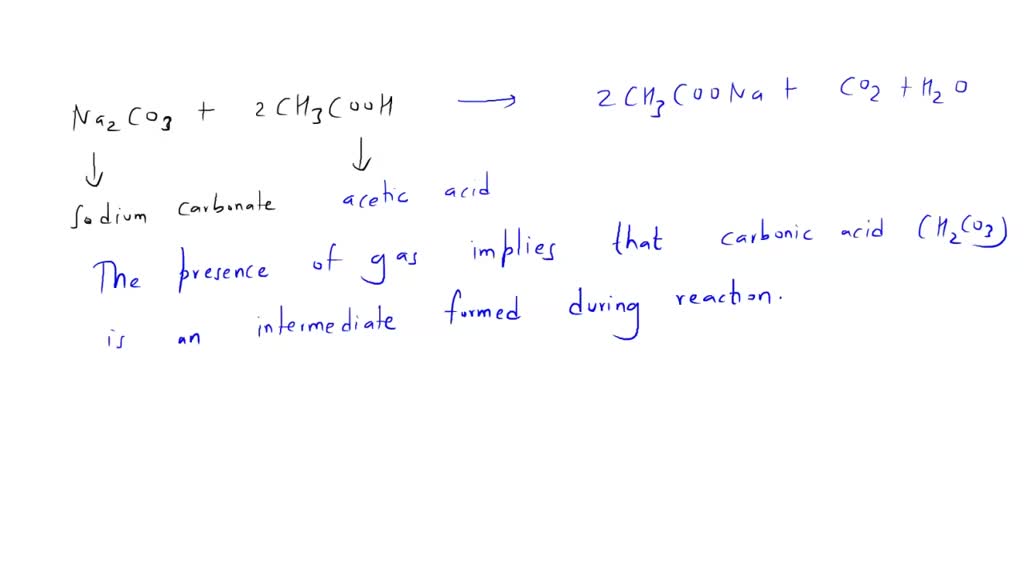 Na₂CO₃ + 2CH₃COOH → 2CH₃COONa + CO₂ + H₂O
↓ ↓
Sodium carbonate acetic acid
The presence of gas implies that carbonic acid (H₂CO₃)
is an intermediate formed during reaction.